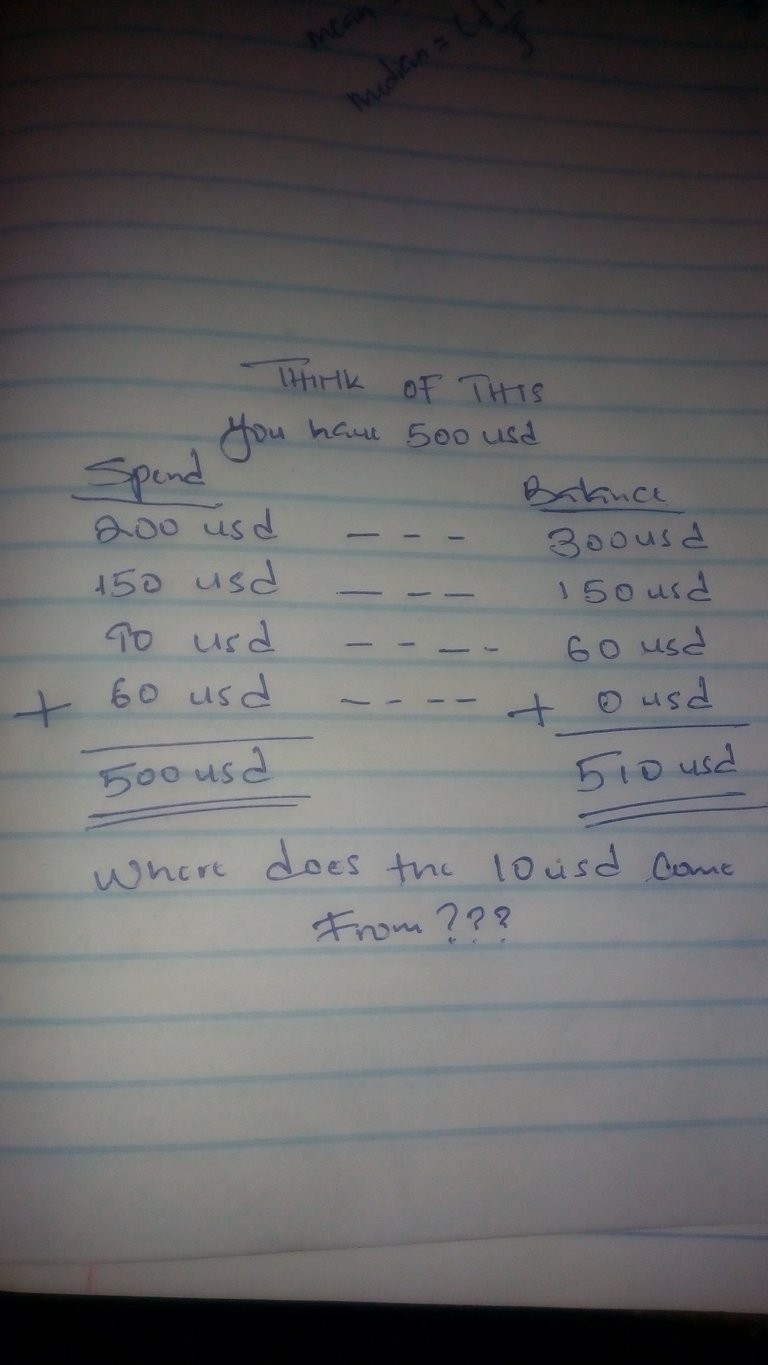 mean =
median =
THINK OF THIS
You have 500 usd
Spend Balance
200 usd --- 300 usd
150 usd --- 150 usd
90 usd ---- 60 usd
+ 60 usd ---- + 0 usd
500 usd 510 usd
Where does the 10 usd Come
From ???